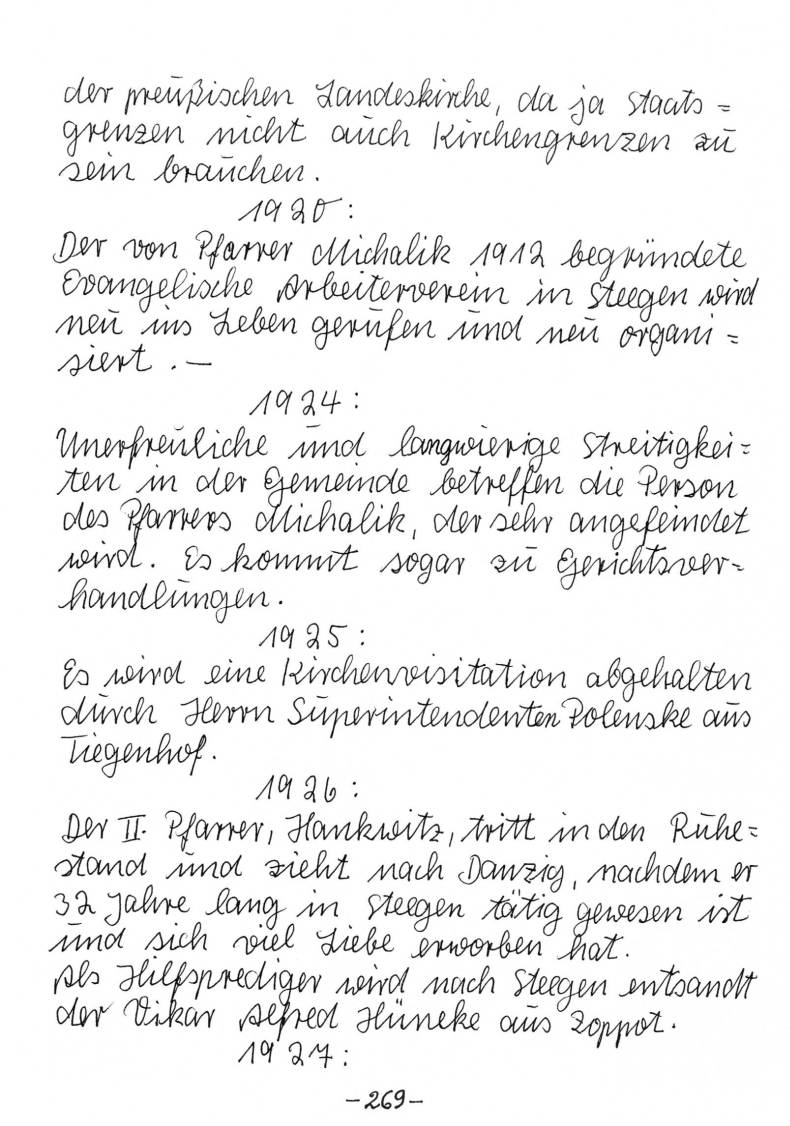 der preußischen Landeskirche, da ja Staats=
grenzen nicht auch Kirchengrenzen zu
sein brauchen.
1920:
Der von Pfarrer Michalik 1912 begründete
Evangelische Arbeiterverein in Steegen wird
neu ins Leben gerufen und neu organi=
siert. —
1924:
Unerfreuliche und langwierige Streitigkei=
ten in der Gemeinde betreffen die Person
des Pfarrers Michalik, der sehr angefeindet
wird. Es kommt sogar zu Gerichtsver=
handlungen.
1925:
Es wird eine Kirchenvisitation abgehalten
durch Herrn Superintendenten Polenske aus
Tiegenhof.
1926:
Der II. Pfarrer, Hankwitz, tritt in den Ruhe=
stand und zieht nach Danzig, nachdem er
32 Jahre lang in Steegen tätig gewesen ist
und sich viel Liebe erworben hat.
Als Hilfsprediger wird nach Steegen entsandt
der Vikar Alfred Hüneke aus Zoppot.
1927:
-269-